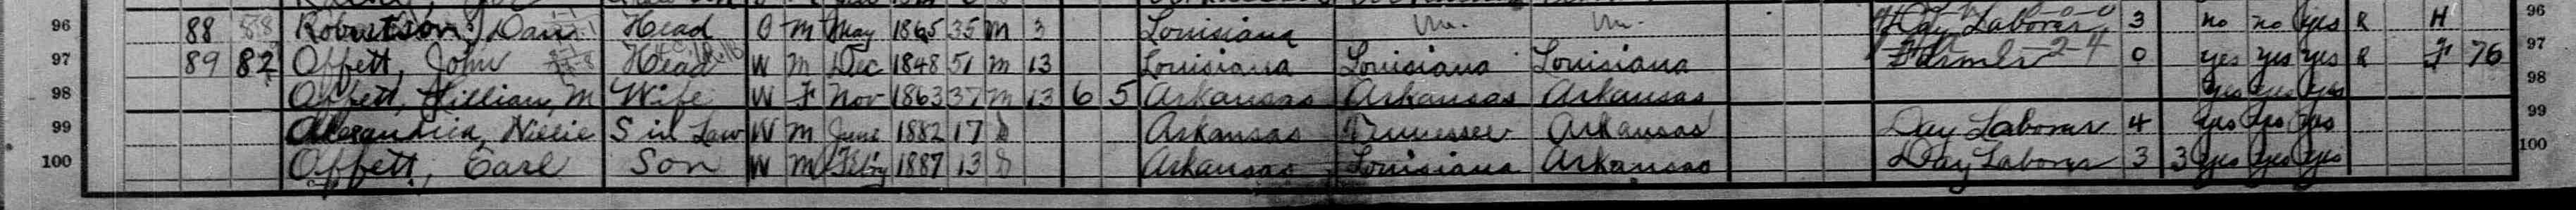 96 88 Robertson, Dan Head M May 1865 35 M 3 Louisiana Un. Un. Day Laborer 3 no no yes R H 96
97 89 82 Offett, John Head W M Dec 1848 51 M 13 Louisiana Louisiana Louisiana Farmer 0 yes yes yes R F 76 97
98 Offett, Lillian, M Wife W F Nov 1863 37 M 13 6 5 Arkansas Arkansas Arkansas yes yes yes 98
99 Willie S in Law W M June 1882 17 S Arkansas Tennessee Arkansas Day Laborer 4 yes yes yes 99
100 Offett, Earl Son W M Feby 1887 13 S Arkansas Louisiana Arkansas Day Laborer 3 3 yes yes yes 100